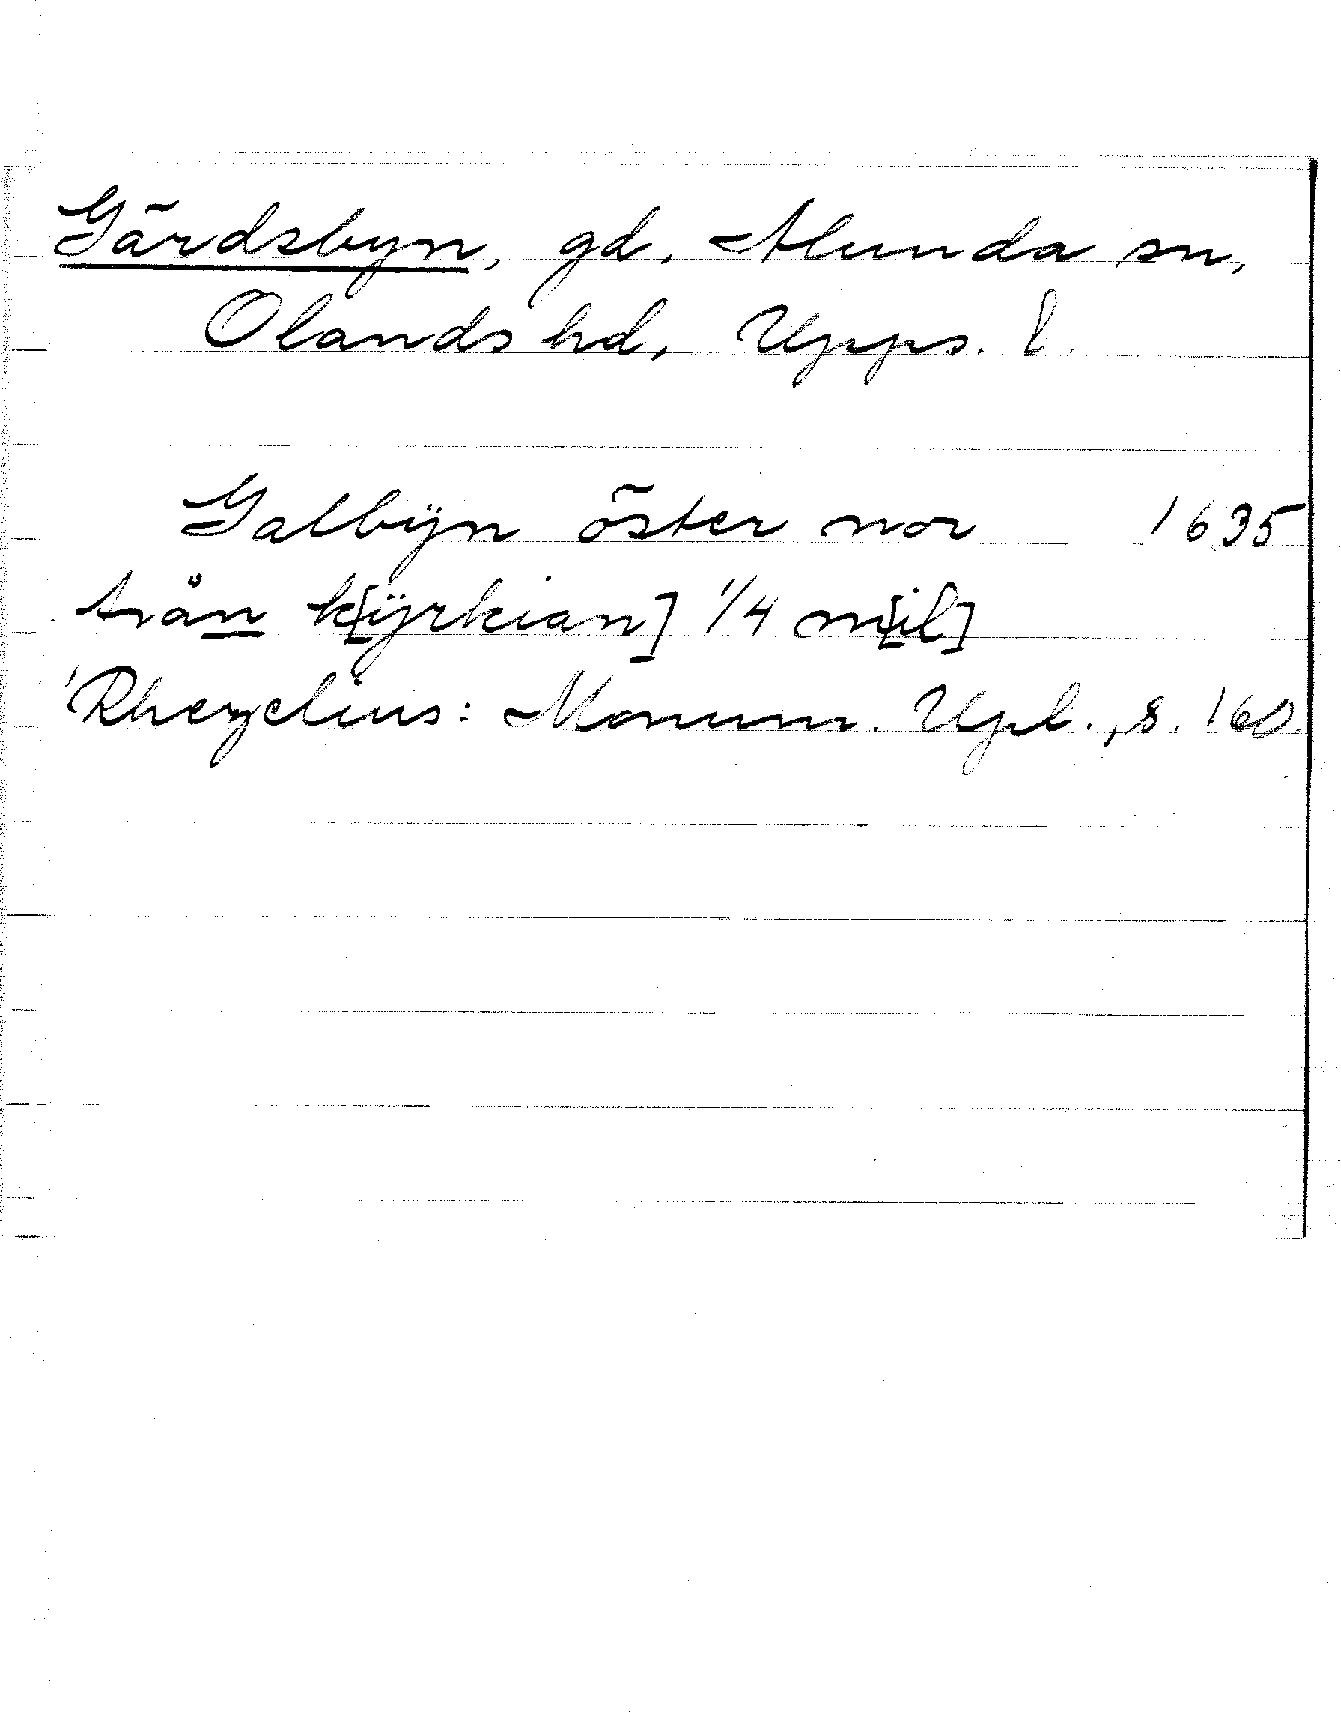 Gärdsbyn, gd, Alunda sn,
Olands hd, Upps. l.
Galbÿn öster nor 1635
trån k[ÿrkian] 1/4 m[il]
Rhezelius: Monum. Upl., s. 160.